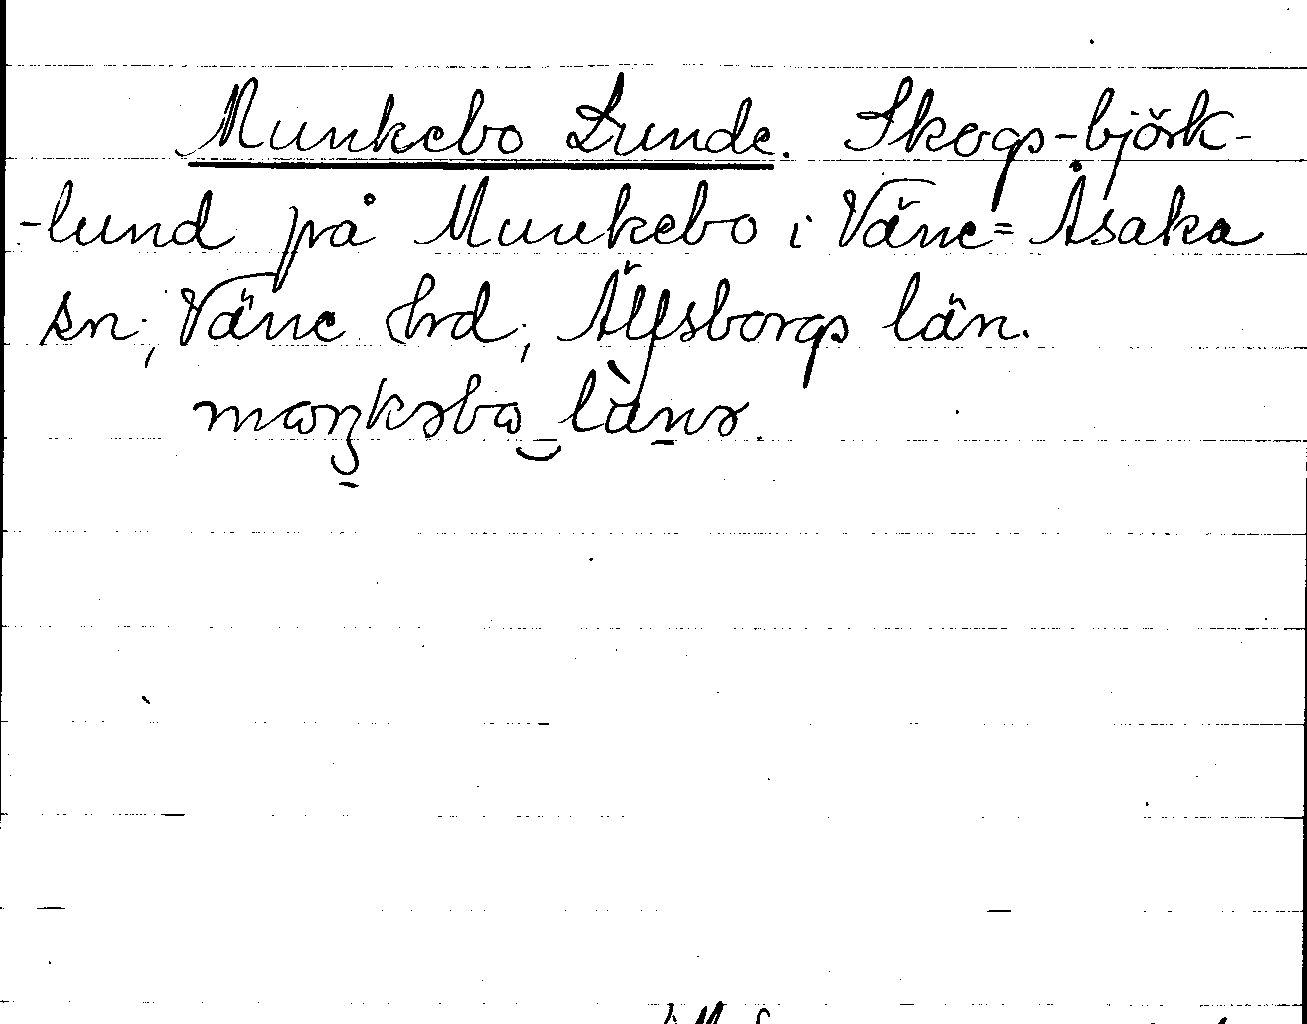 Munkebo Lunde. Skogs-björk-
-lund på Munkebo i Väne=Åsaka
sn; Väne hrd; Älfsborgs län.